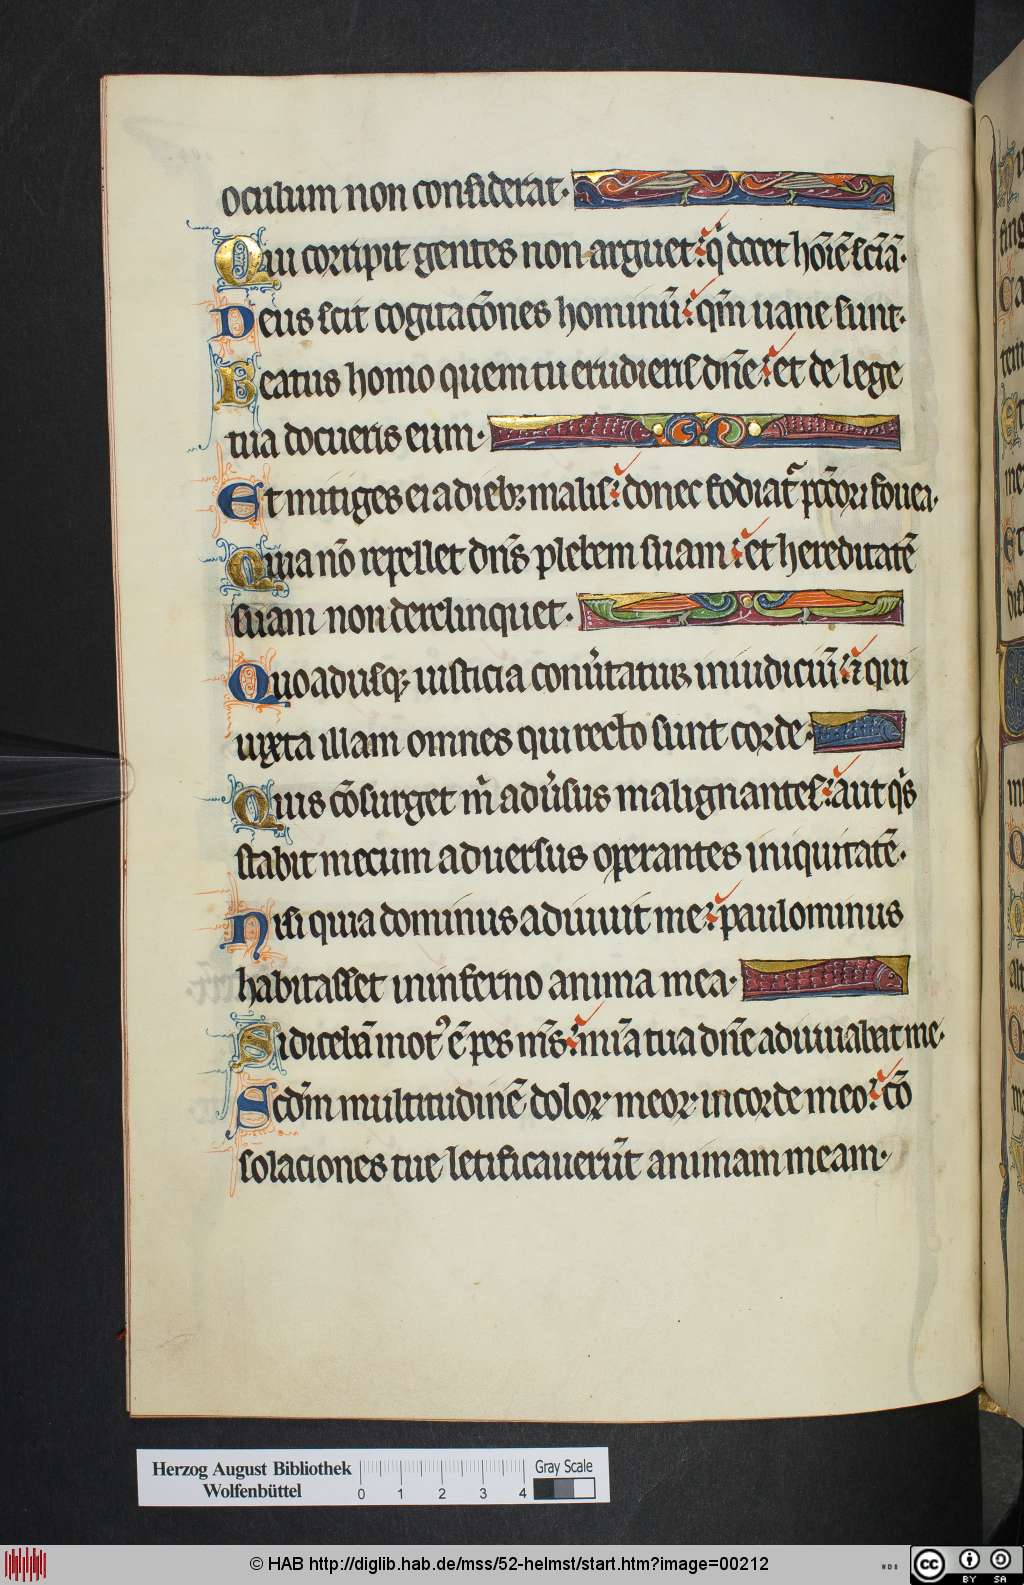 oculum non considerat·
Qui corripit gentes non arguet: q̄ docet hoīē sciā·
Deus scit cogitacōnes hominū: qm̄ uane sunt·
Beatus homo quem tu erudieris dn̄e: et de lege
tua docueris eum·
Et mitiges ei a dieb; malis: donec fodiat᷑ pcc̄ori fouea·
Quia nō repellet dn̄s plebem suam: et hereditatē
suam non derelinquet·
Quoadusq; iusticia conu̓tatur in iudiciū: ⁊ qui
iuxta illam omnes qui recto sunt corde·
Quis cōsurget m̄ adu̓sus malignantes: aut qͥs
stabit mecum aduersus operantes iniquitatē·
Nisi quia dominus adiuuit me: paulominus
habitasset in inferno anima mea·
Si dicebā motꝰ ē pes m̄s: mīa tua dn̄e adiuuabat me·
Scdm̄ multitudinē doloꝝ meoꝝ in corde meo: cō
solaciones tue letificauerūt animam meam·
Herzog August Bibliothek
Wolfenbüttel
0 1 2 3 4
Gray Scale
© HAB http://diglib.hab.de/mss/52-helmst/start.htm?image=00212
WDB
cc BY SA